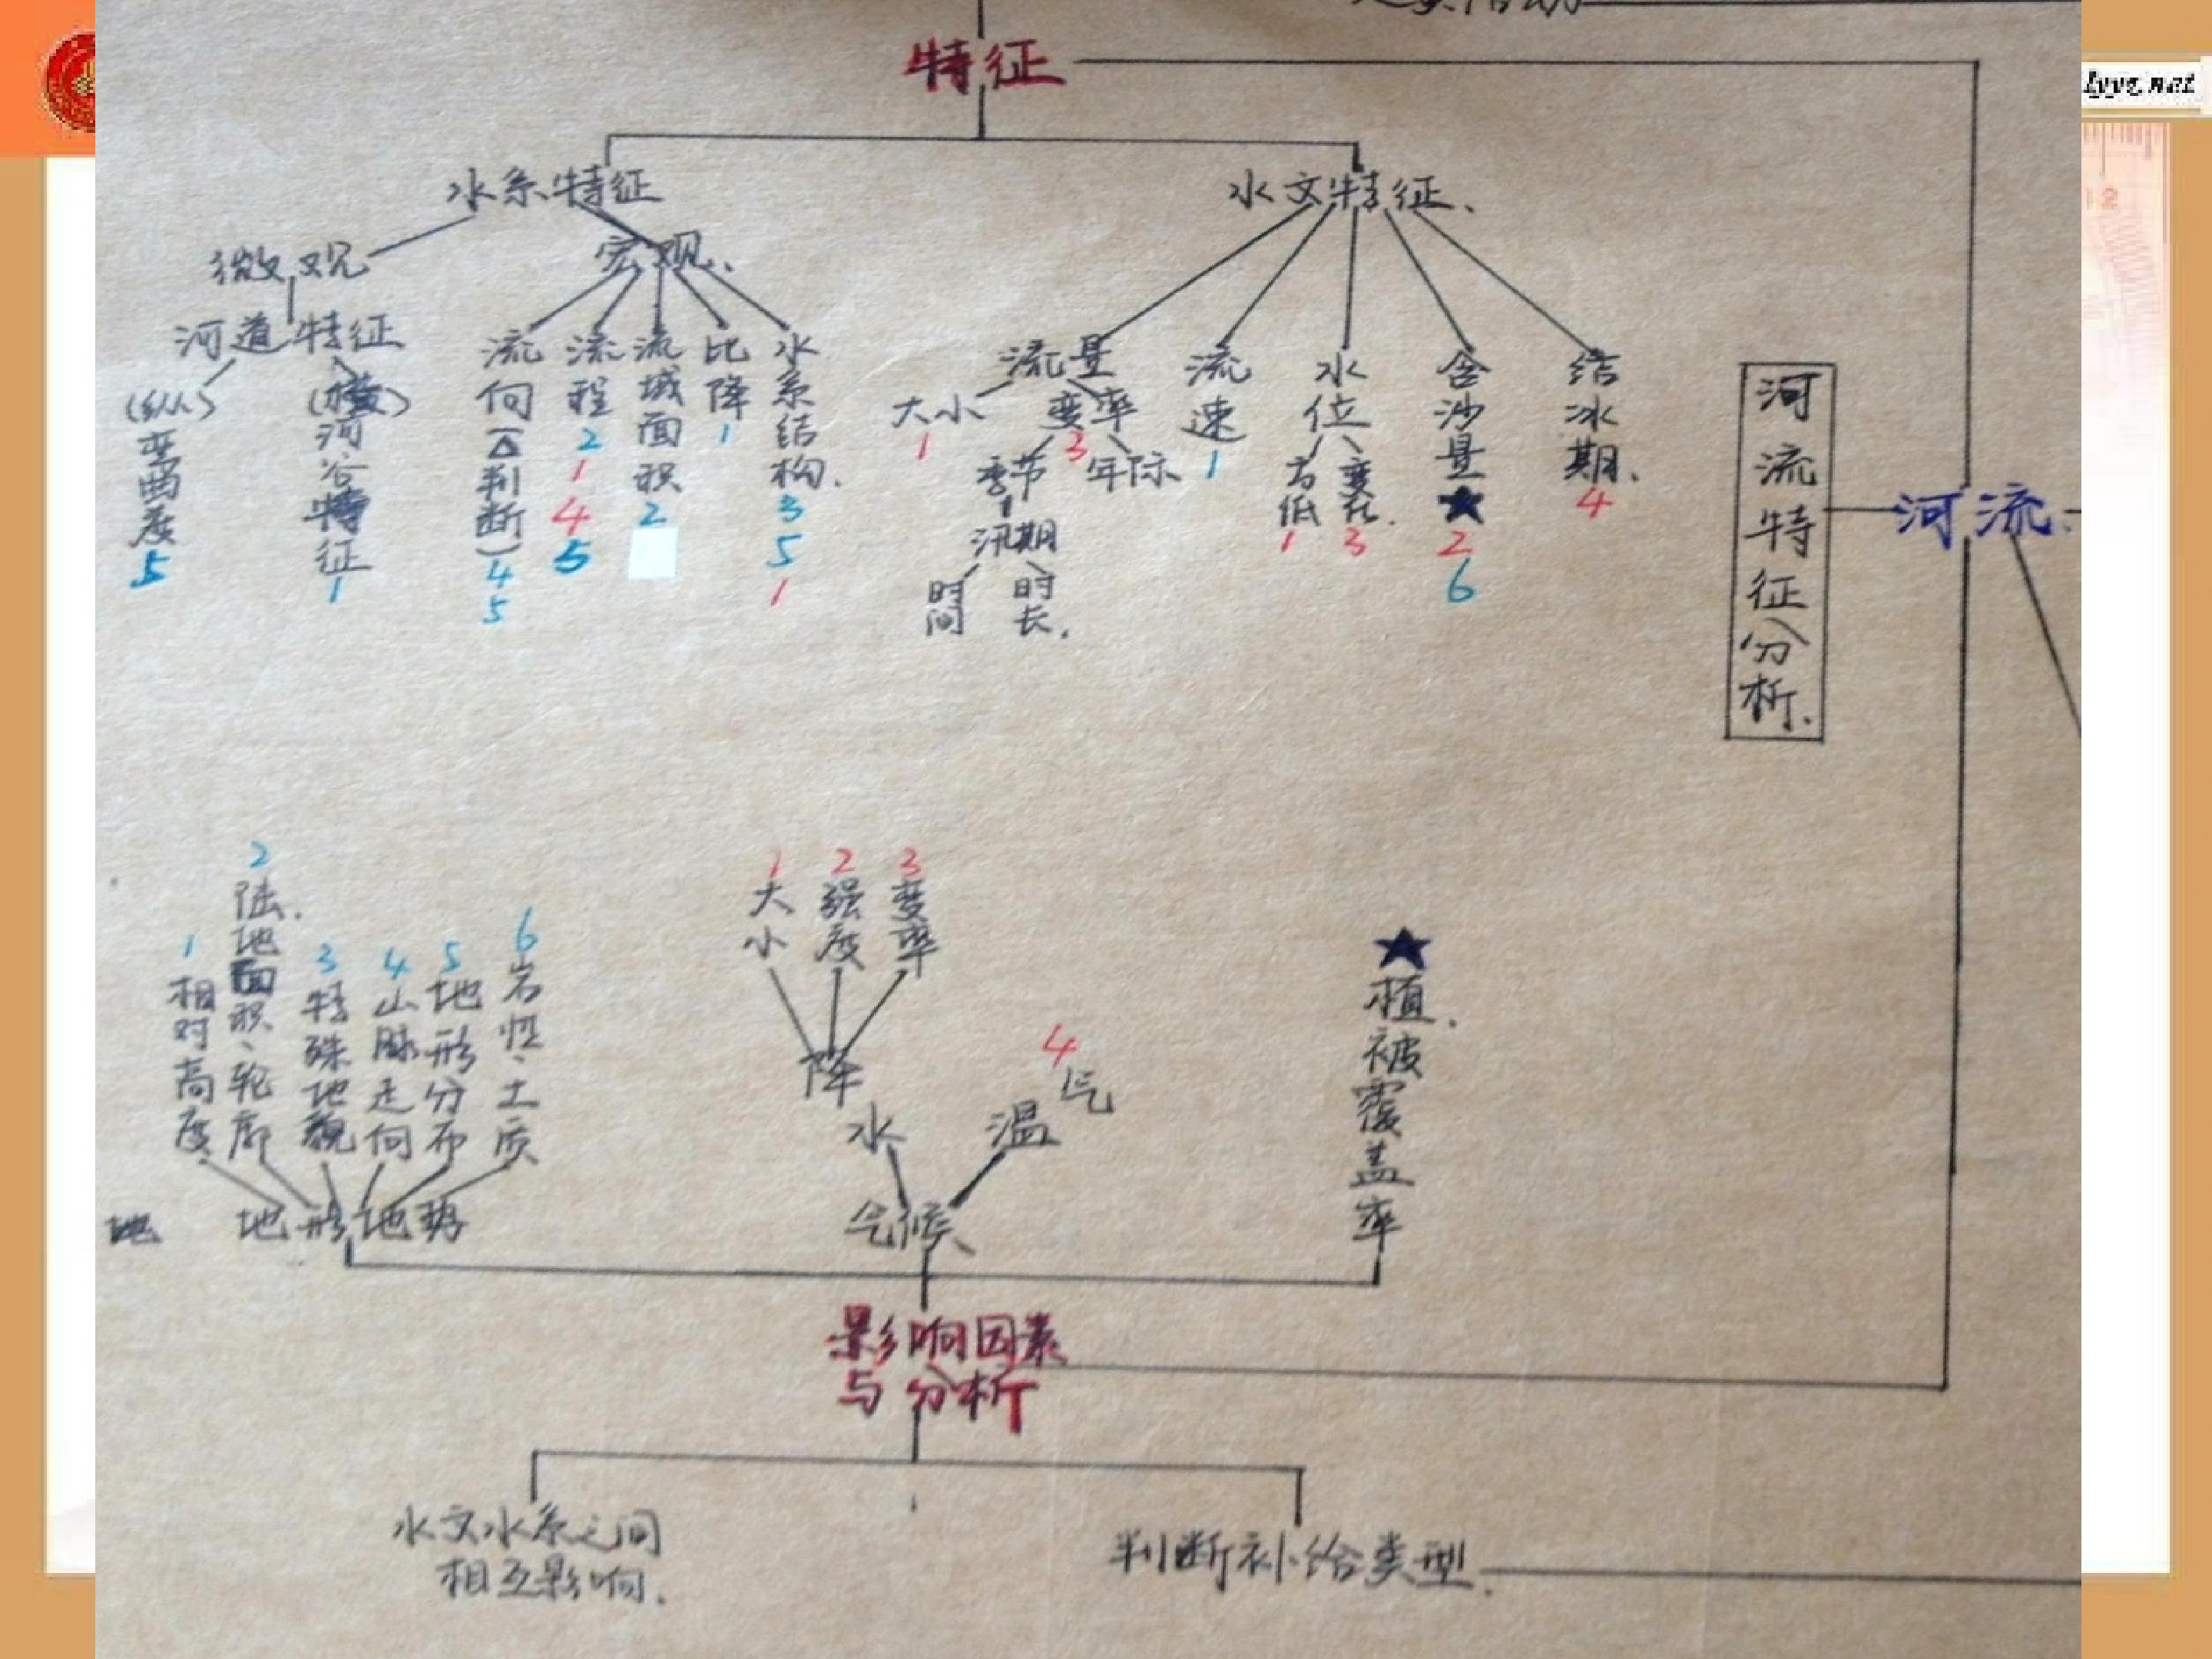 特征
lyyz.net
水系特征
水文特征.
微观
宏观.
河道特征
(纵)
弯曲度
5
(横)
河谷特征
1
流向(△判断)
4
5
流程
2
1
4
5
流域面积
2
比降
1
水系结构.
3
5
1
流量
大小
1
变率
3
季节
年际
汛期
时间
时长.
流速
1
水位
高低
1
变化.
3
含沙量
★
2
6
结冰期.
4
河流特征分析.
河流.
1
相对高度
2
陆地面积、轮廓
3
特殊地貌
4
山脉走向
5
地形分布
6
岩性、土质
地
地形地势
1
大小
2
强度
3
变率
降水
4
气温
气候
★
植被覆盖率
影响因素
与分析
水文水系之间
相互影响.
判断补给类型.
12